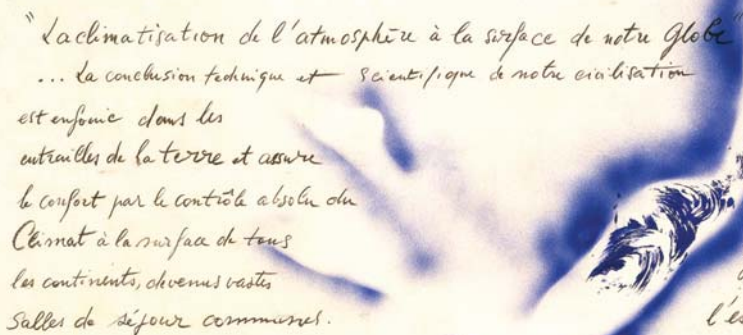 "La climatisation de l'atmosphère à la surface de notre Globe"
... La conclusion technique et scientifique de notre civilisation
est enfouie dans les
entrailles de la terre et assure
le confort par le contrôle absolu du
Climat à la surface de tous
les continents, devenus vastes
salles de séjour communes.
l'es